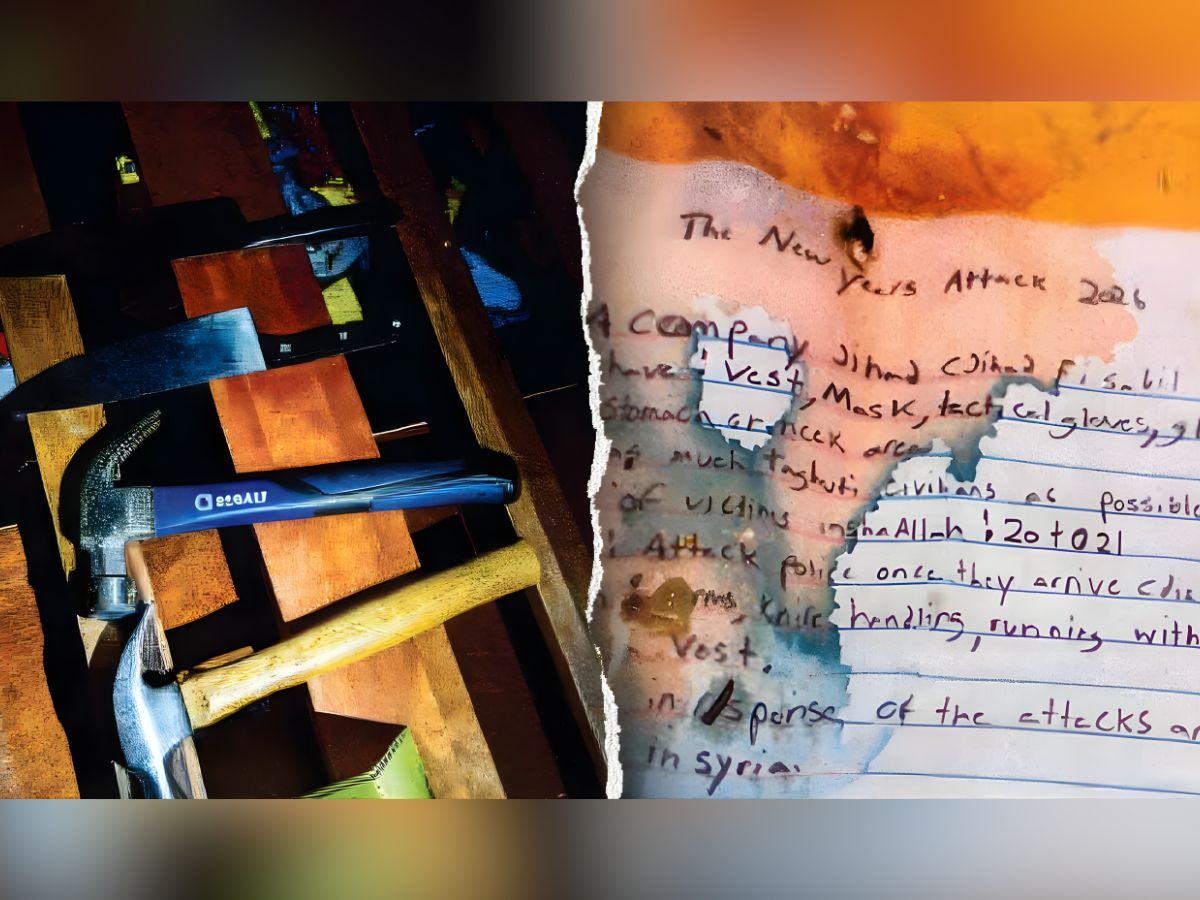 The New Years Attack 2026
A company Jihad (Jihad Fi sabil
have : Vest, Mask, tactical gloves,
stomach or neck area
much taghuti civilians as possible
of victims inshaAllah : 20 to 21
Attack police once they arrive
knife handling, running with
Vest.
in response of the attacks
in syria.